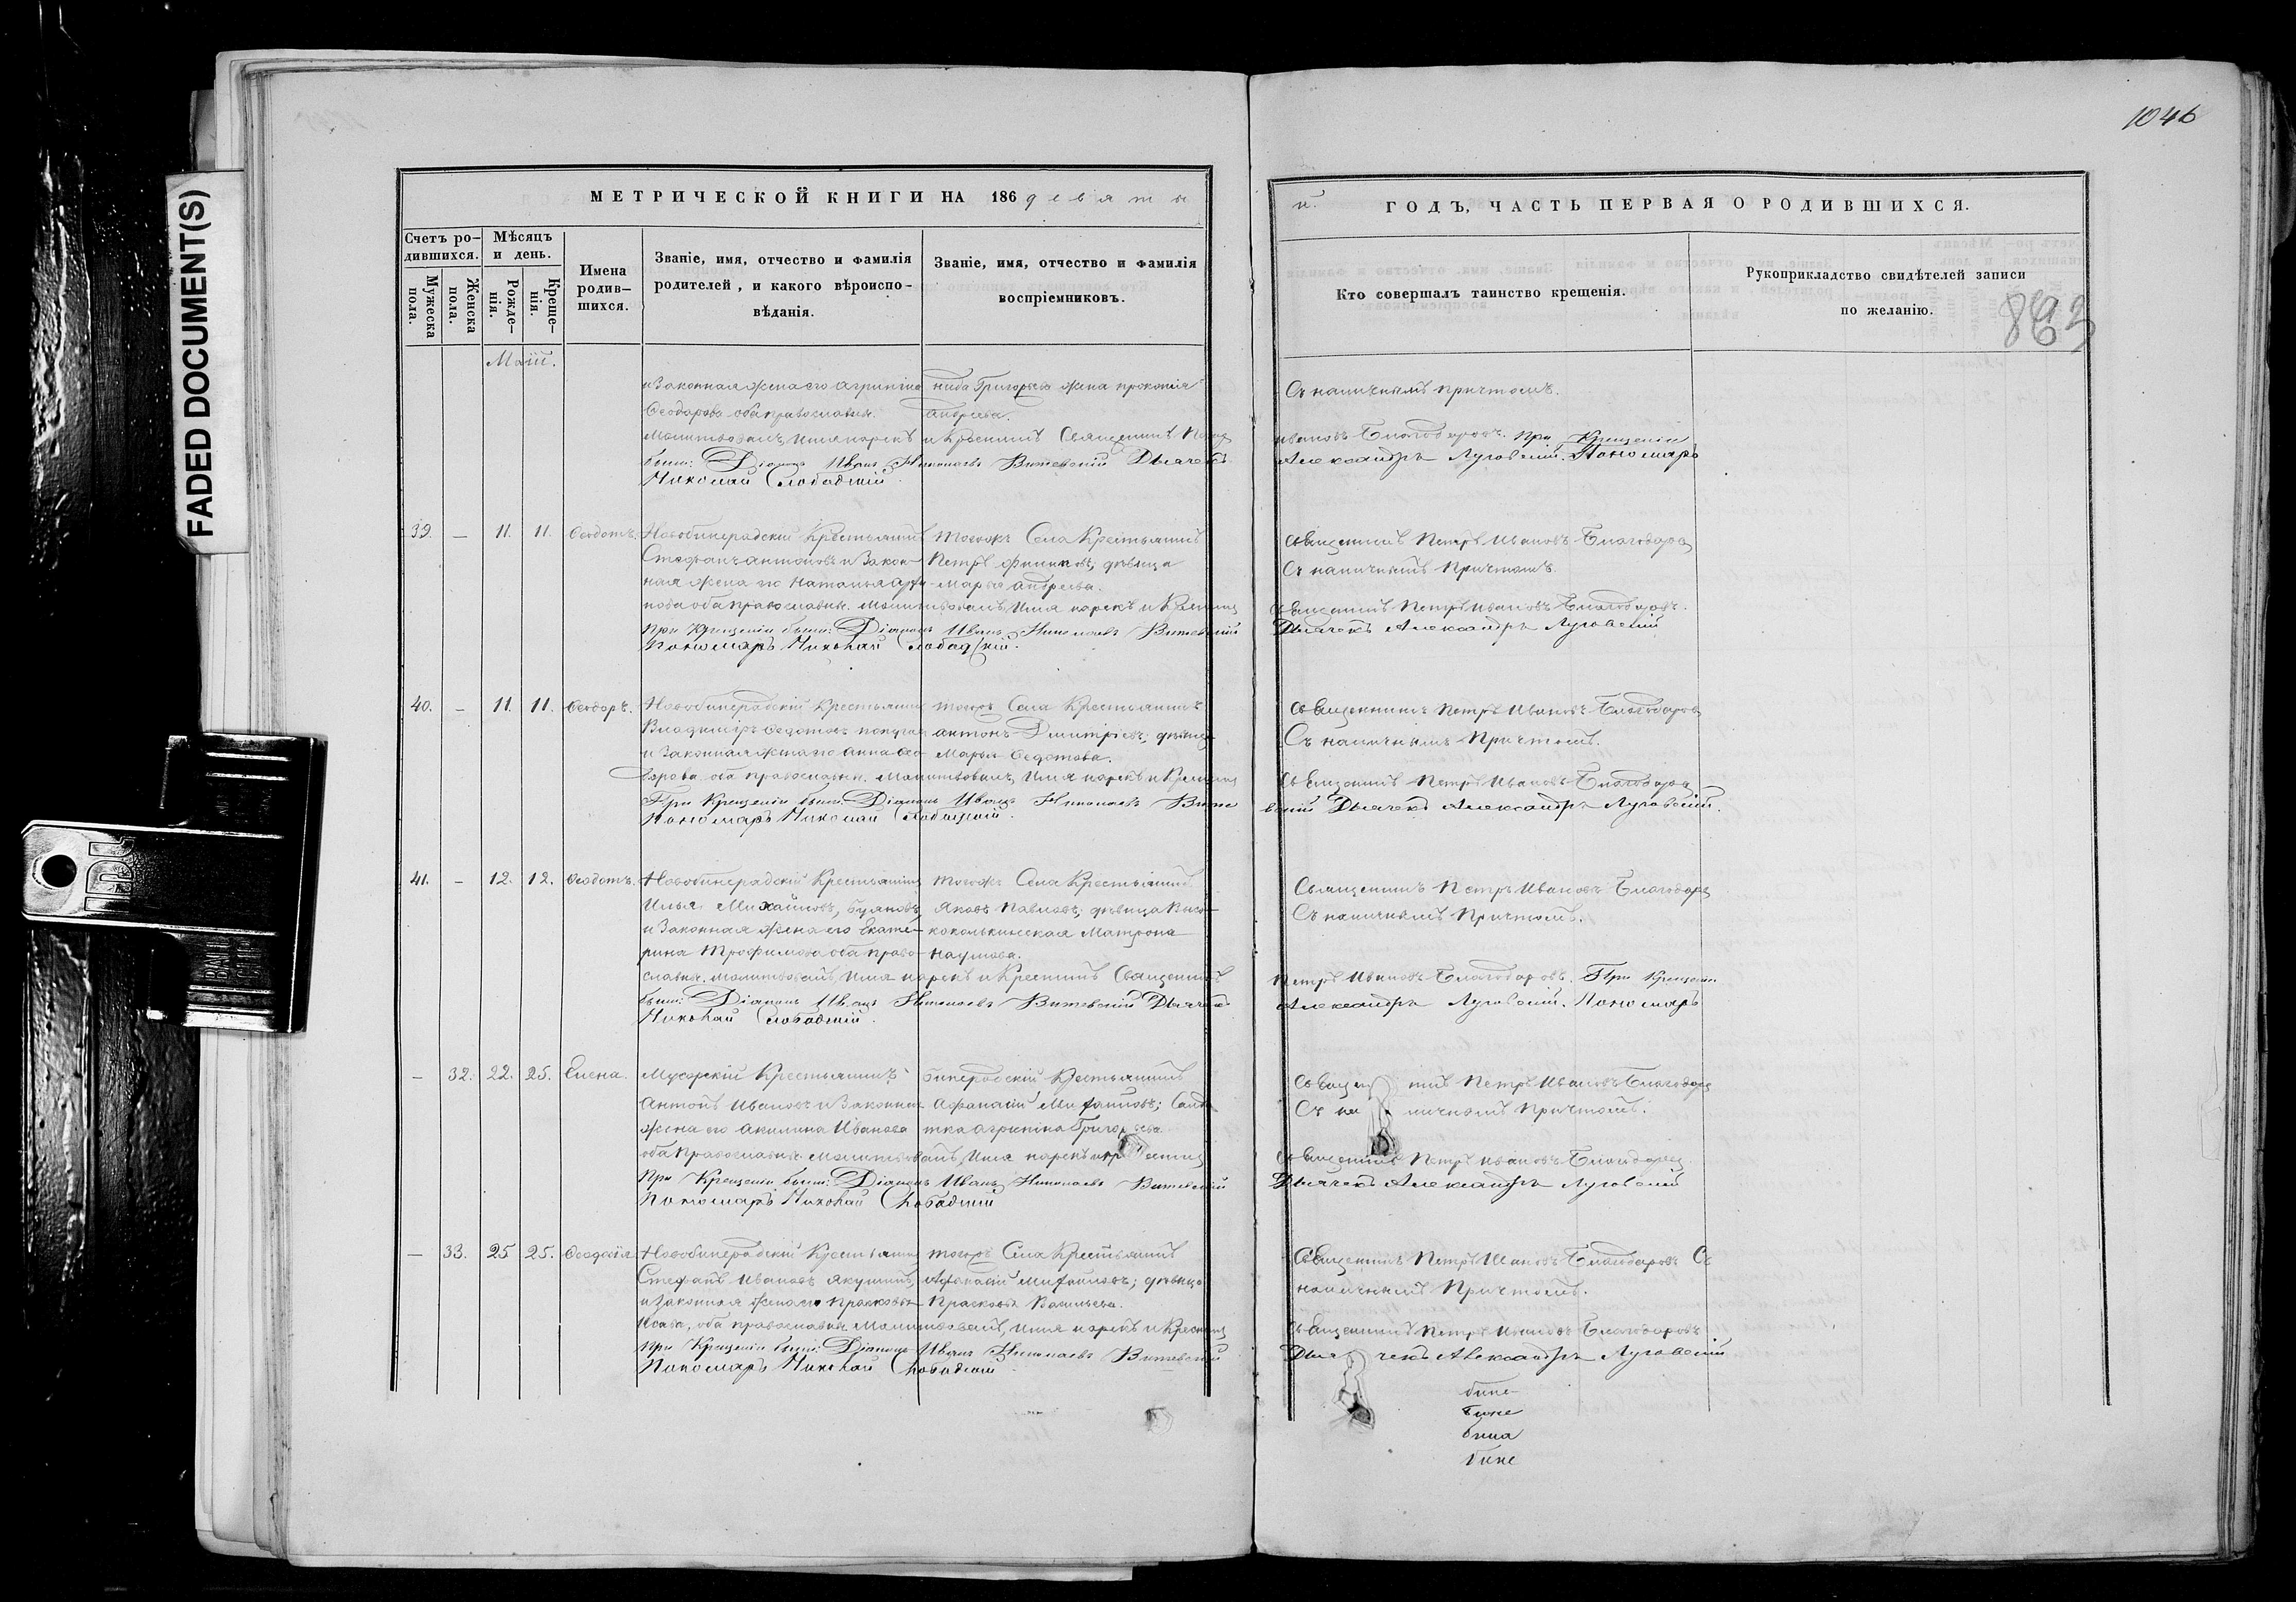 1046
FADED DOCUMENT(S)
МЕТРИЧЕСКОЙ КНИГИ НА 186 девяты
й. ГОДЪ, ЧАСТЬ ПЕРВАЯ О РОДИВШИХСЯ.
Счетъ ро-
дившихся.
Мужеска
пола.
Женска
пола.
Мѣсяцъ
и день.
Рожде-
нія.
Креще-
нія.
Имена
родив-
шихся.
Званіе, имя, отчество и фамилія
родителей, и какого вѣроиспо-
вѣданія.
Званіе, имя, отчество и фамилія
воспріемниковъ.
Кто совершалъ таинство крещенія.
Рукоприкладство свидѣтелей записи
по желанію.
Маій.
и Законная жена его Агрипіна
Ѳеодорова оба православны.
Григорьева жена прокопія
андреева.
Съ наличнымъ причтомъ.
Молитвовалъ, имя нарекъ и Крестилъ Священникъ Петръ Ивановъ Благодаровъ. При Крещеніи
были: Діаконъ Иванъ Николаевъ Витевскій Дьячекъ Александръ Луговскій. Пономарь
Николай Слободскій.
39. — 11. 11. Ѳеодотъ.
Новобинарадскій Крестьянинъ
Стефанъ антоновъ и Закон-
ная жена его Наталья
оба православны.
тогожъ Села Крестьянинъ
Петръ Филиповъ; дѣвица
Марья андреева.
Священникъ Петръ Ивановъ Благодаровъ
Съ наличнымъ Причтомъ.
Молитвовалъ, имя нарекъ и Крестилъ Священникъ Петръ Ивановъ Благодаровъ.
При Крещеніи были: Діаконъ Иванъ Николаевъ Витевскій Дьячекъ Александръ Луговскій
Пономарь Николай Слободскій.
40. — 11. 11. Ѳеодоръ.
Новобинарадскій Крестьянинъ
Владиміръ Ѳедотовъ
и Законная жена его Анна Ѳео-
дорова оба православны.
тогожъ Села Крестьянинъ
антонъ Димитріевъ; дѣвица
Марья Ѳедотова.
Священникъ Петръ Ивановъ Благодаровъ
Съ наличнымъ Причтомъ.
Молитвовалъ, Имя нарекъ и Крестилъ Священникъ Петръ Ивановъ Благодаровъ
При Крещеніи были: Діаконъ Иванъ Николаевъ Витевскій Дьячекъ Александръ Луговскій.
Пономарь Николай Слободскій.
41. — 12. 12. Ѳеодотъ.
Новобинарадскій Крестьянинъ
Илья Михайловъ, Буяновъ,
и Законная жена его Екате-
рина Трофимова оба право-
славны.
тогожъ Села Крестьянинъ
Яковъ Павловъ; дѣвица
Матрона
Наумова.
Священникъ Петръ Ивановъ Благодаровъ
Съ наличнымъ Причтомъ.
Молитвовалъ, Имя нарекъ и Крестилъ Священникъ Петръ Ивановъ Благодаровъ. При Крещеніи
были: Діаконъ Иванъ Николаевъ Витевскій Дьячекъ Александръ Луговскій. Пономарь
Николай Слободскій.
— 32. 22. 25. Елена.
Мусорскій Крестьянинъ
Антонъ Ивановъ и Законная
жена его Акилина Иванова
оба Православны.
бинарадскій Крестьянинъ
Афанасій Михайловъ; Солда-
тка агрипіна Григорьева.
Священникъ Петръ Ивановъ Благодаровъ
Съ наличнымъ Причтомъ.
Молитвовалъ, Имя нарекъ и Крестилъ Священникъ Петръ Ивановъ Благодаровъ
При Крещеніи были: Діаконъ Иванъ Николаевъ Витевскій Дьячекъ Александръ Луговскій
Пономарь Николай Слободскій
— 33. 25 25. Ѳеодосія
Новобинарадскій Крестьянинъ
Стефанъ Ивановъ Якушинъ,
и Законная жена его Прасковья
оба православны.
тогожъ Села Крестьянинъ
Афанасій Михайловъ; дѣвица
Прасковья Васильева.
Священникъ Петръ Ивановъ Благодаровъ Съ
наличнымъ Причтомъ.
Молитвовалъ, имя нарекъ и Крестилъ Священникъ Петръ Ивановъ Благодаровъ
При Крещеніи были: Діаконъ Иванъ Николаевъ Витевскій Дьячекъ Александръ Луговскій
Пономарь Николай Слободскій.